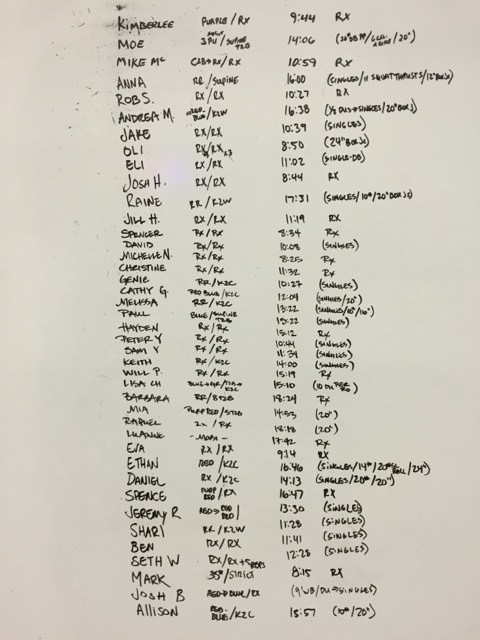 KIMBERLEE PURPLE/RX 9:44 RX
MOE 3PU/SUPINE 14:06
MIKE MC RX/RX 10:59 RX
ANNA RR/SUPINE 16:00 (SINGLES/11 SQUAT THRUSTS/12" BOX JS)
ROB S. RX/RX 10:27 RX
ANDREA M. BLUE/K2W 16:38 (1/2 DUS→SINGLES/20" BOX J)
JAKE RX/RX 10:39 (SINGLES)
OLI RX/RX 8:50 (24" BOX JS)
ELI RX/RX x3 11:02 (SINGLE-DO)
JOSH H. RX/RX 8:44 RX
RAINE RR/K2W 17:31 (SINGLES/10#/20" BOX JS)
JILL H. RX/RX 11:19 RX
SPENCER RX/RX 8:34 RX
DAVID RX/RX 10:08 (SINGLES)
MICHELLE N. RX/RX 8:25 RX
CHRISTINE RX/RX 11:32 RX
GENIE RR/K2C 10:27 (SINGLES)
CATHY G. RED BLUE/K2C 12:04 (SINGLES/20")
MELISSA RR/K2C 13:22 (SINGLES/10#/16")
PAUL BLUE/SUPINE 15:22 (SINGLES)
HAYDEN RX/RX 15:12 RX
PETER Y RX/RX 10:44 (SINGLES)
SAM Y RX/RX 11:34 (SINGLES)
KEITH RX/K2C 14:00 (SINGLES)
WILL P. RX/RX 15:19 RX
LISA CH K2C 15:10 (10 DU PER RD)
BARBARA RR/STZB 18:24 RX
MIA PURP RED/STZB 14:53 (20")
RAPHAEL 2x/RX 18:18 (20")
LUANNE -MOPA- 17:42 RX
EVA RX/RX 9:14 RX
ETHAN RED/K2C 16:46 (SINGLES/14#/20# BALL/24")
DANIEL RX/K2C 14:13 (SINGLES/20#/20")
SPENCE PURP RED/RX 16:47 RX
JEREMY R RED→PRP RED/ 13:30 (SINGLES)
SHARI RR/K2W 11:28 (SINGLES)
BEN RX/RX 11:41 (SINGLES)
SETH W RX/RX+5 REPS 12:28 (SINGLES)
MARK 35#/STRICT 8:15 RX
JOSH B RED→BLUE/RX (9'WB/DU→SINGLES)
ALLISON RED-BLUE/K2C 15:57 (10#/20")